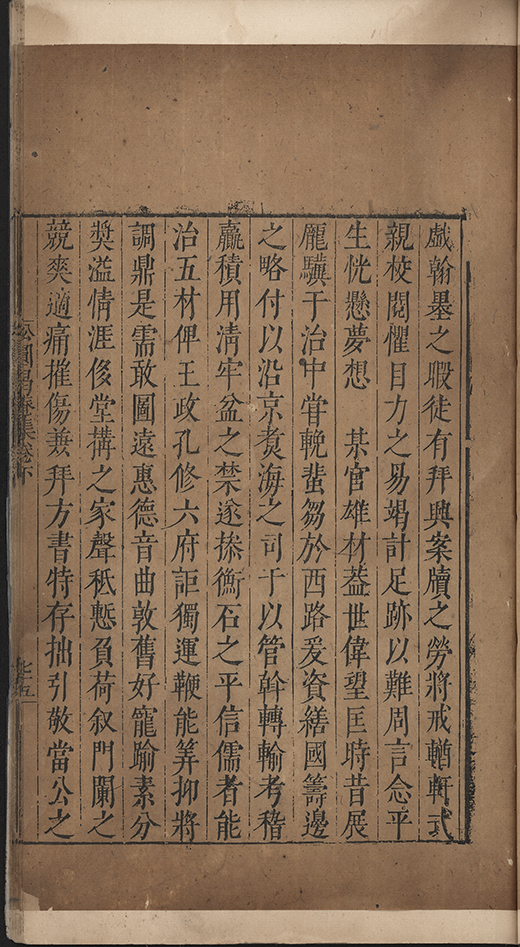 戲翰墨之暇徒有拜興案牘之勞將戒輶軒式
親校閱懼目力之易竭計足跡以難周言念平
生恍懸夢想　某官雄材蓋世偉望匡時昔展
龐驥于治中甞輓蜚芻於西路爰資繕國籌邊
之略付以沿京煑海之司于以管斡轉輸考稽
贏積用清牢盆之禁遂操衡石之平信儒者能
治五材俾王政孔修六府詎獨運鞭能筭抑將
調鼎是需敢圖遠惠德音曲敦舊好寵踰素分
奬溢情涯侈堂搆之家聲秪慙負荷叙門闌之
競爽適痛摧傷兼拜方書特存拙引敬當公之